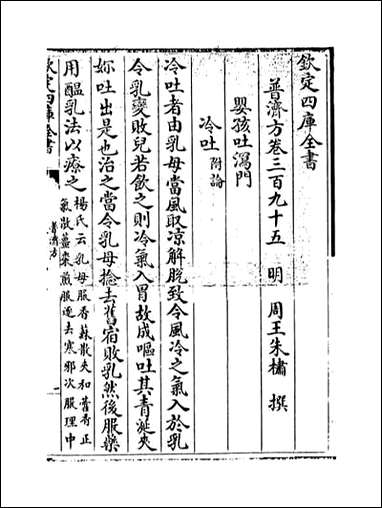 欽定四庫全書
普濟方卷三百九十五　明　周王朱橚　撰
嬰孩吐瀉門
冷吐附論
冷吐者由乳母當風取涼解脱致令風冷之氣入於乳
令乳變敗兒若飲之則冷氣入胃故成嘔吐其青涎夾
妳吐出是也治之當令乳母捻去舊宿敗乳然後服藥
用醖乳法以療之楊氏云乳母服香蘇散夾和藿香正
氣散薑棗煎服逐去寒邪次服理中
欽定四庫全書
普濟方
一